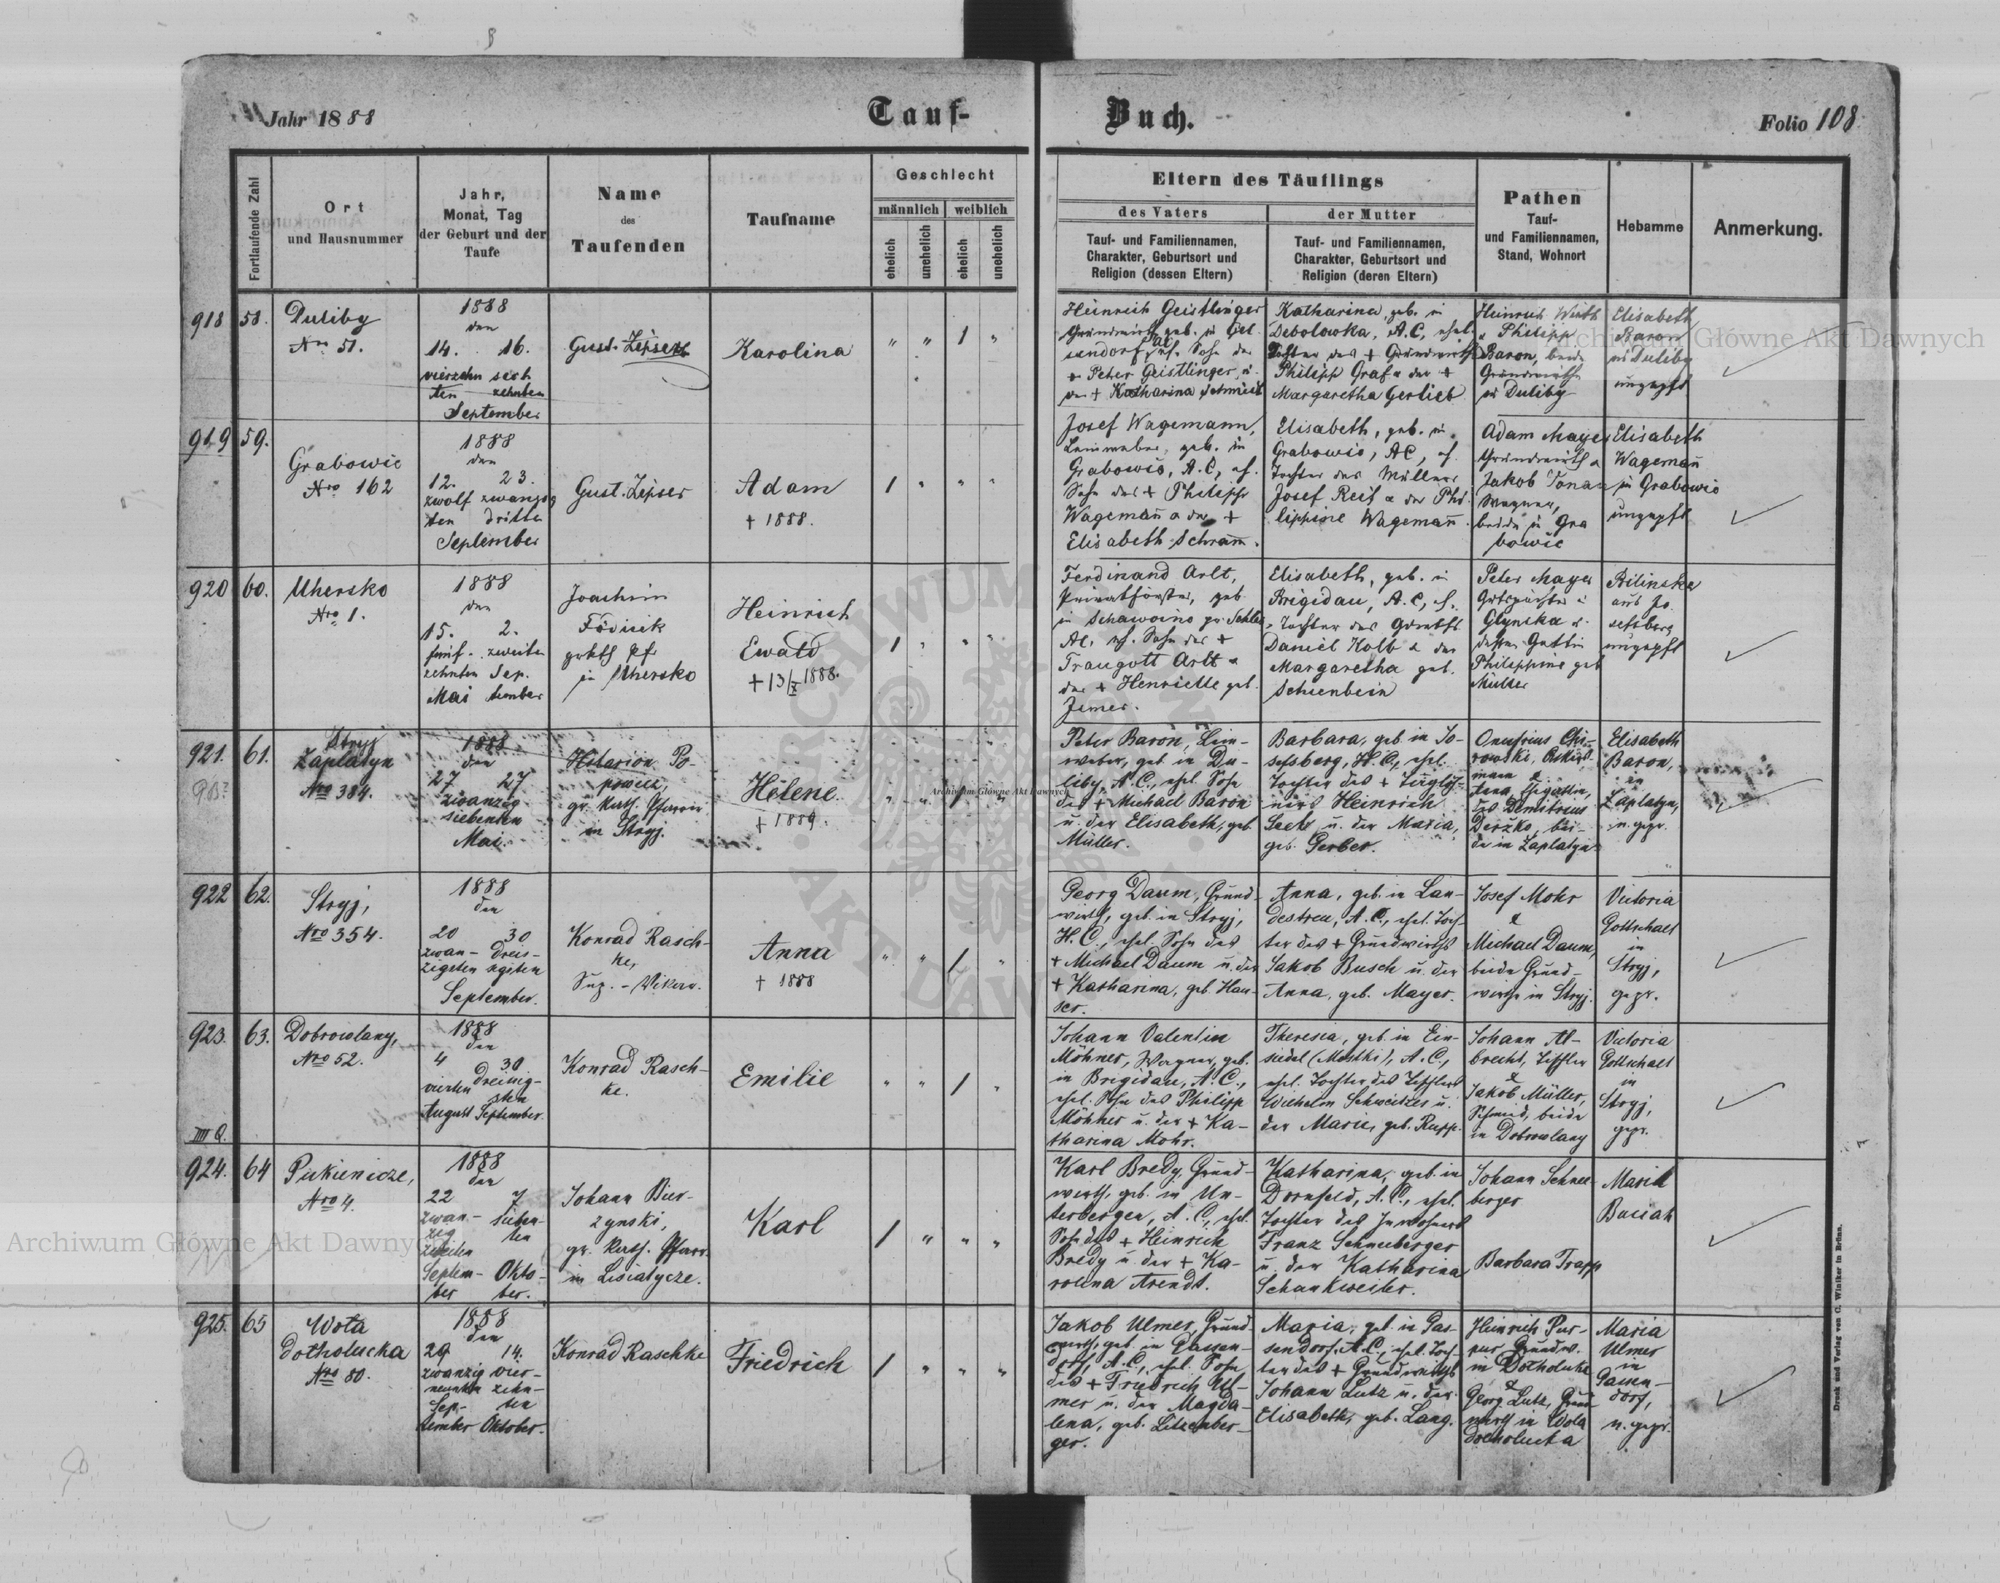 Jahr 1888
Tauf-
Buch.
Folio 108
Fortlaufende Zahl
Ort
und Hausnummer
Jahr,
Monat, Tag
der Geburt und der
Taufe
Name
des
Taufenden
Taufname
Geschlecht
männlich
weiblich
ehelich
unehelich
ehelich
unehelich
Eltern des Täuflings
des Vaters
Tauf- und Familiennamen,
Charakter, Geburtsort und
Religion (dessen Eltern)
der Mutter
Tauf- und Familiennamen,
Charakter, Geburtsort und
Religion (deren Eltern)
Pathen
Tauf-
und Familiennamen,
Stand, Wohnort
Hebamme
Anmerkung.
918 58.
Duliby
Nro 51.
1888
den
14. 16.
vierzehn sech
ten zehnten
September
Gust. Zipser
Karolina
" " 1 "
Heinrich Geistlinger
Grundwirth, geb. in
+ Peter Geistlinger u.
der + Katharina Schmidt
Katharina, geb. in
Debolowka, A.C., ehel.
Tochter des + Grundwirth
Philipp Graf u der +
Margaretha Gerlieb
Heinrich Wirth
u Philipp
Baron, beide
Grundwirthe
in Duliby
Elisabeth
Baron
in Duliby
ungepft
919 59.
Grabowic
Nro 162
1888
den
12. 23.
zwölf zwanzig
ten dritten
September
Gust. Zipser
Adam
+ 1888.
1 " " "
Josef Wagemann,
Leinweber, geb. in
Grabowic, A.C., eh.
Sohn des + Philipp
Wagemañ u der +
Elisabeth Schram.
Elisabeth, geb. in
Grabowic, AC, eh.
Tochter des Müllers
Josef Reis u der Phi-
lippine Wagemañ.
Adam Mayer
Grundwirth u
Jakob Tonau
Wagner,
beide in Gra
bowic
Elisabeth
Wagemañ
in Grabowic
ungepft
920 60.
Uhersko
Nro 1.
1888
den
15. 2.
fünf- zweiten
zehnten Sep.
Mai tember
Joachim
gr kth Pfr
in Uhersko
Heinrich
Ewald
+ 13/X 1888.
1 " " "
Ferdinand Arlt,
Privatförster, geb.
AC, eh. Sohn des +
Traugott Arlt u
der + Henriette geb.
Elisabeth, geb. in
Brigidau, A.C., eh.
Tochter des
Daniel Kolb u der
Margaretha geb.
Schienbein
Peter Mayer
Gutspächter in
Glynska u.
dessen Gattin
Philippine geb
Müller
Bilinska
aus Jo
sefsberg
ungepft
921. 61.
Stryj
Zaplatyn
Nro 384.
1888
den
27 27
zwanzig
siebenten
Mai.
Hilarion Po-
gr. kath. Pfarrer
in Stryj.
Helene.
+ 1889.
" " 1 "
Peter Baron, Lein-
weber, geb. in Du-
liby, A.C., ehel. Sohn
des + Michael Baron
u. der Elisabeth, geb.
Müller.
Barbara, geb. in Jo-
sefsberg, H.C., ehel.
Tochter des + Taglöh-
ners Heinrich
Sacks u. der Maria,
geb. Gerber.
Onufrius
Anna
des Demitrius
Derżko, bei-
de in Zaplatyn
Elisabeth
Baron,
in
Zaplatyn,
un gepr.
922 62.
Stryj,
Nro 354.
1888
den
20 30
zwan- dreis-
zigsten sigsten
September.
Konrad Rasch-
ke,
Sup. - Vikar.
Anna
+ 1888
" " 1 "
Georg Daum, Grund-
wirth, geb. in Stryj,
H.C., ehel. Sohn des
+ Michael Daum u. der
+ Katharina, geb. Hau-
ser.
Anna, geb. in Lan-
destreu, A.C., ehel. Toch-
ter des + Grundwirths
Jakob Busch u. der
Anna, geb. Mayer.
Josef Mohr
&
Michael Daum,
beide Grund-
wirthe in Stryj
Victoria
Gottschalk
in
Stryj,
gepr.
923. 63.
Dobrowlany,
Nro 52.
1888
den
4 30
vierten dreissig-
sten
August September.
Konrad Rasch-
ke.
Emilie
" " 1 "
Johann Valentin
Möhner, Wagner, geb.
in Brigidau, A.C.,
ehel. Sohn des Philipp
Möhner u. der + Ka-
tharina Mohr.
Theresia, geb. in Ein-
siedel (Mostki), A.C.,
ehel. Tochter des Tischlers
Wilhelm Schweitzer u.
der Marie, geb. Rupp.
Johann Al-
brecht, Tischler
&
Jakob Müller,
Schmied, beide
in Dobrowlany
Victoria
Gottschalk
in
Stryj,
gepr.
IIII Q.
924. 64
Pukienicze,
Nro 4.
1888
den
22 7
zwan- sieben-
zig ten
zweiten
Septem- Okto-
ber ber.
Johann Bier-
zynski,
gr. kath. Pfarr.
in Lisiatycze.
Karl
1 " " "
Karl Bredy, Grund-
wirth, geb. in Un-
terbergen, A.C., ehel.
Sohn des + Heinrich
Bredy u der + Ka-
rolina Arendt.
Katharina, geb. in
Dornfeld, A.C., ehel.
Tochter des Inwohners
Franz Schneeberger
u. der Katharina
Schankweiler.
Johann Schnee-
berger
Barbara Trapp
Maria
Baciak
925. 65
Wola
dotholucka
Nro 80.
1888
den
29 14.
zwanzig vier-
neunten zehn-
Sep- ten
tember Oktober.
Konrad Raschke
Friedrich
1 " " "
Jakob Ulmer, Grund-
wirth, geb. in Gassen-
dorf, A.C., ehel. Sohn
des + Friedrich Ul-
mer u. der Magda-
lena, geb. Litzenber-
ger.
Maria, geb. in Gas-
sendorf, A.C., ehel. Toch-
ter des + Grundwirths
Johann Lutz u. der
Elisabeth, geb. Lang.
Heinrich Pur-
pur Grundw.
in Dotholuka
&
Georg Lutz, Grund-
wirth in Wola
dotholucka
Maria
Ulmer
in
Gassen-
dorf,
u. gepr.
Druck und Verlag von C. Winiker in Brünn.
Archiwum Główne Akt Dawnych
Archiwum Główne Akt Dawnych
Archiwum Główne Akt Dawnych
ARCHIWUM
AKT DAWN